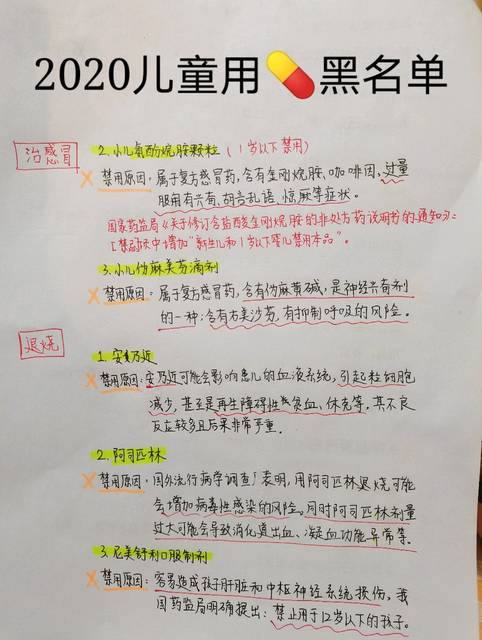 2020儿童用💊黑名单
治感冒
2.小儿氨酚烷胺颗粒(1岁以下禁用)
禁用原因:属于复方感冒药,含有金刚烷胺、咖啡因,过量
服用有兴奋、胡言乱语、惊厥等症状。
国家药监局《关于修订含盐酸金刚烷胺的非处方药说明书的通知》:
【禁忌】中增加“新生儿和1岁以下婴儿禁用本品”。
3.小儿伪麻美芬滴剂
禁用原因:属于复方感冒药,含有伪麻黄碱,是神经兴奋剂
的一种;含有右美沙芬,有抑制呼吸的风险。
退烧
1.安乃近
禁用原因:安乃近可能会影响患儿的血液系统,引起粒细胞
减少,甚至是再生障碍性贫血、休克等,其不良
反应较多且后果非常严重.
2.阿司匹林
禁用原因:国外流行病学调查表明,用阿司匹林退烧可能
会增加病毒性感染的风险。同时阿司匹林剂量
过大可能会导致消化道出血、凝血功能异常等.
3.尼美舒利口服制剂
禁用原因:容易造成孩子肝脏和中枢神经系统损伤,我
国药监局明确提出:禁止用于12岁以下的孩子。